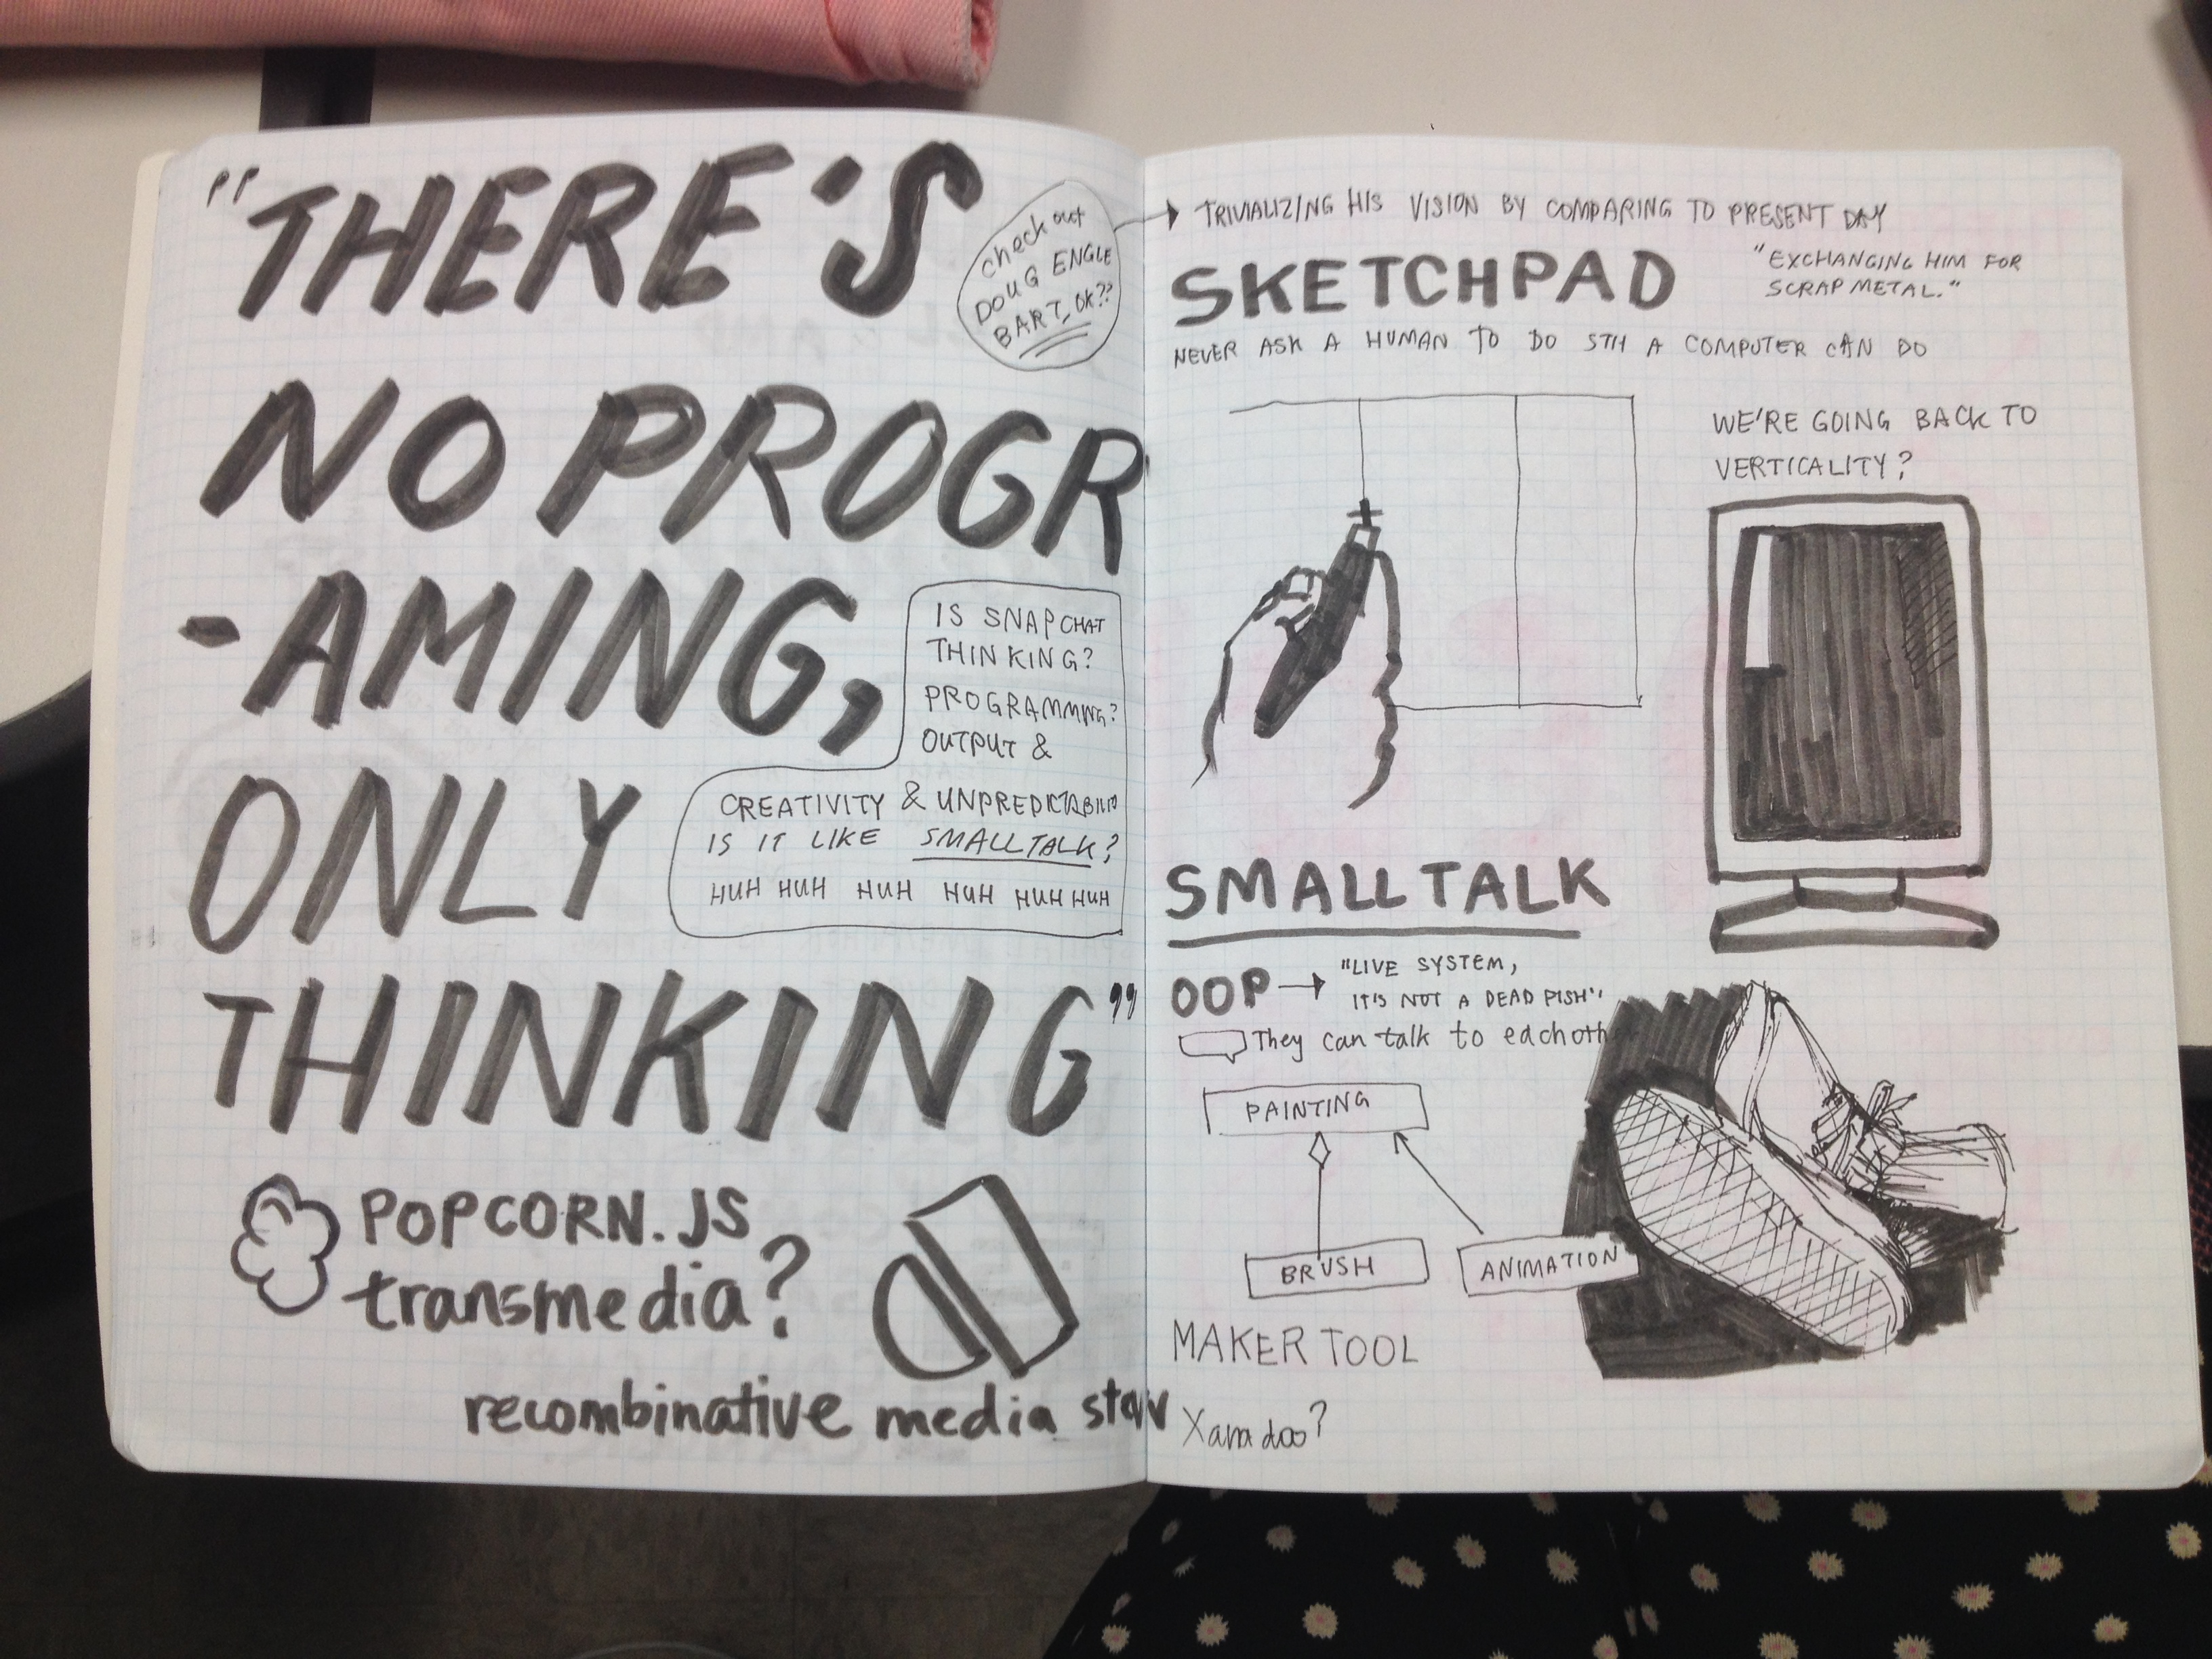 "THERE'S
NO PROGR
-AMING,
ONLY
THINKING"
check out
DOUG ENGLE
BART, OK??
IS SNAPCHAT
THINKING?
PROGRAMMING?
OUTPUT &
CREATIVITY & UNPREDICTABILITY
IS IT LIKE SMALLTALK?
HUH HUH HUH HUH HUH HUH
POPCORN.JS
transmedia?
recombinative media
TRIVIALIZING HIS VISION BY COMPARING TO PRESENT DAY
"EXCHANGING HIM FOR
SCRAP METAL."
SKETCHPAD
NEVER ASK A HUMAN TO DO STH A COMPUTER CAN DO
WE'RE GOING BACK TO
VERTICALITY?
SMALLTALK
OOP → "LIVE SYSTEM,
IT'S NOT A DEAD FISH"
They can talk to each oth
PAINTING
BRUSH
ANIMATION
MAKER TOOL
Xanadoo?